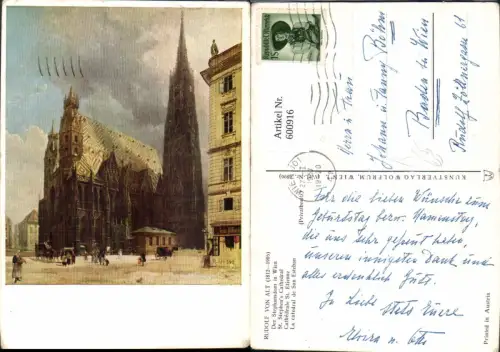 RUDOLF VON ALT (1812–1905)
Der Stephansdom in Wien
St. Stephen's Cathedral
Cathédrale St. Étienne
La catedral de San Esteban
Artikel Nr.
600916
Herrn u. Frau
Johann u. Fanny Böhm
Baden bei Wien
Rudolf Zöllnergasse 61
KUNSTVERLAG WOLFRUM, WIEN I.
Für die lieben Wünsche zum
Geburtstag bezw. Namenstag,
die uns sehr gefreut haben,
unseren innigsten Dank und
alles erdenklich Gute.
In Liebe
stets Euere
u. Otto
Printed in Austria